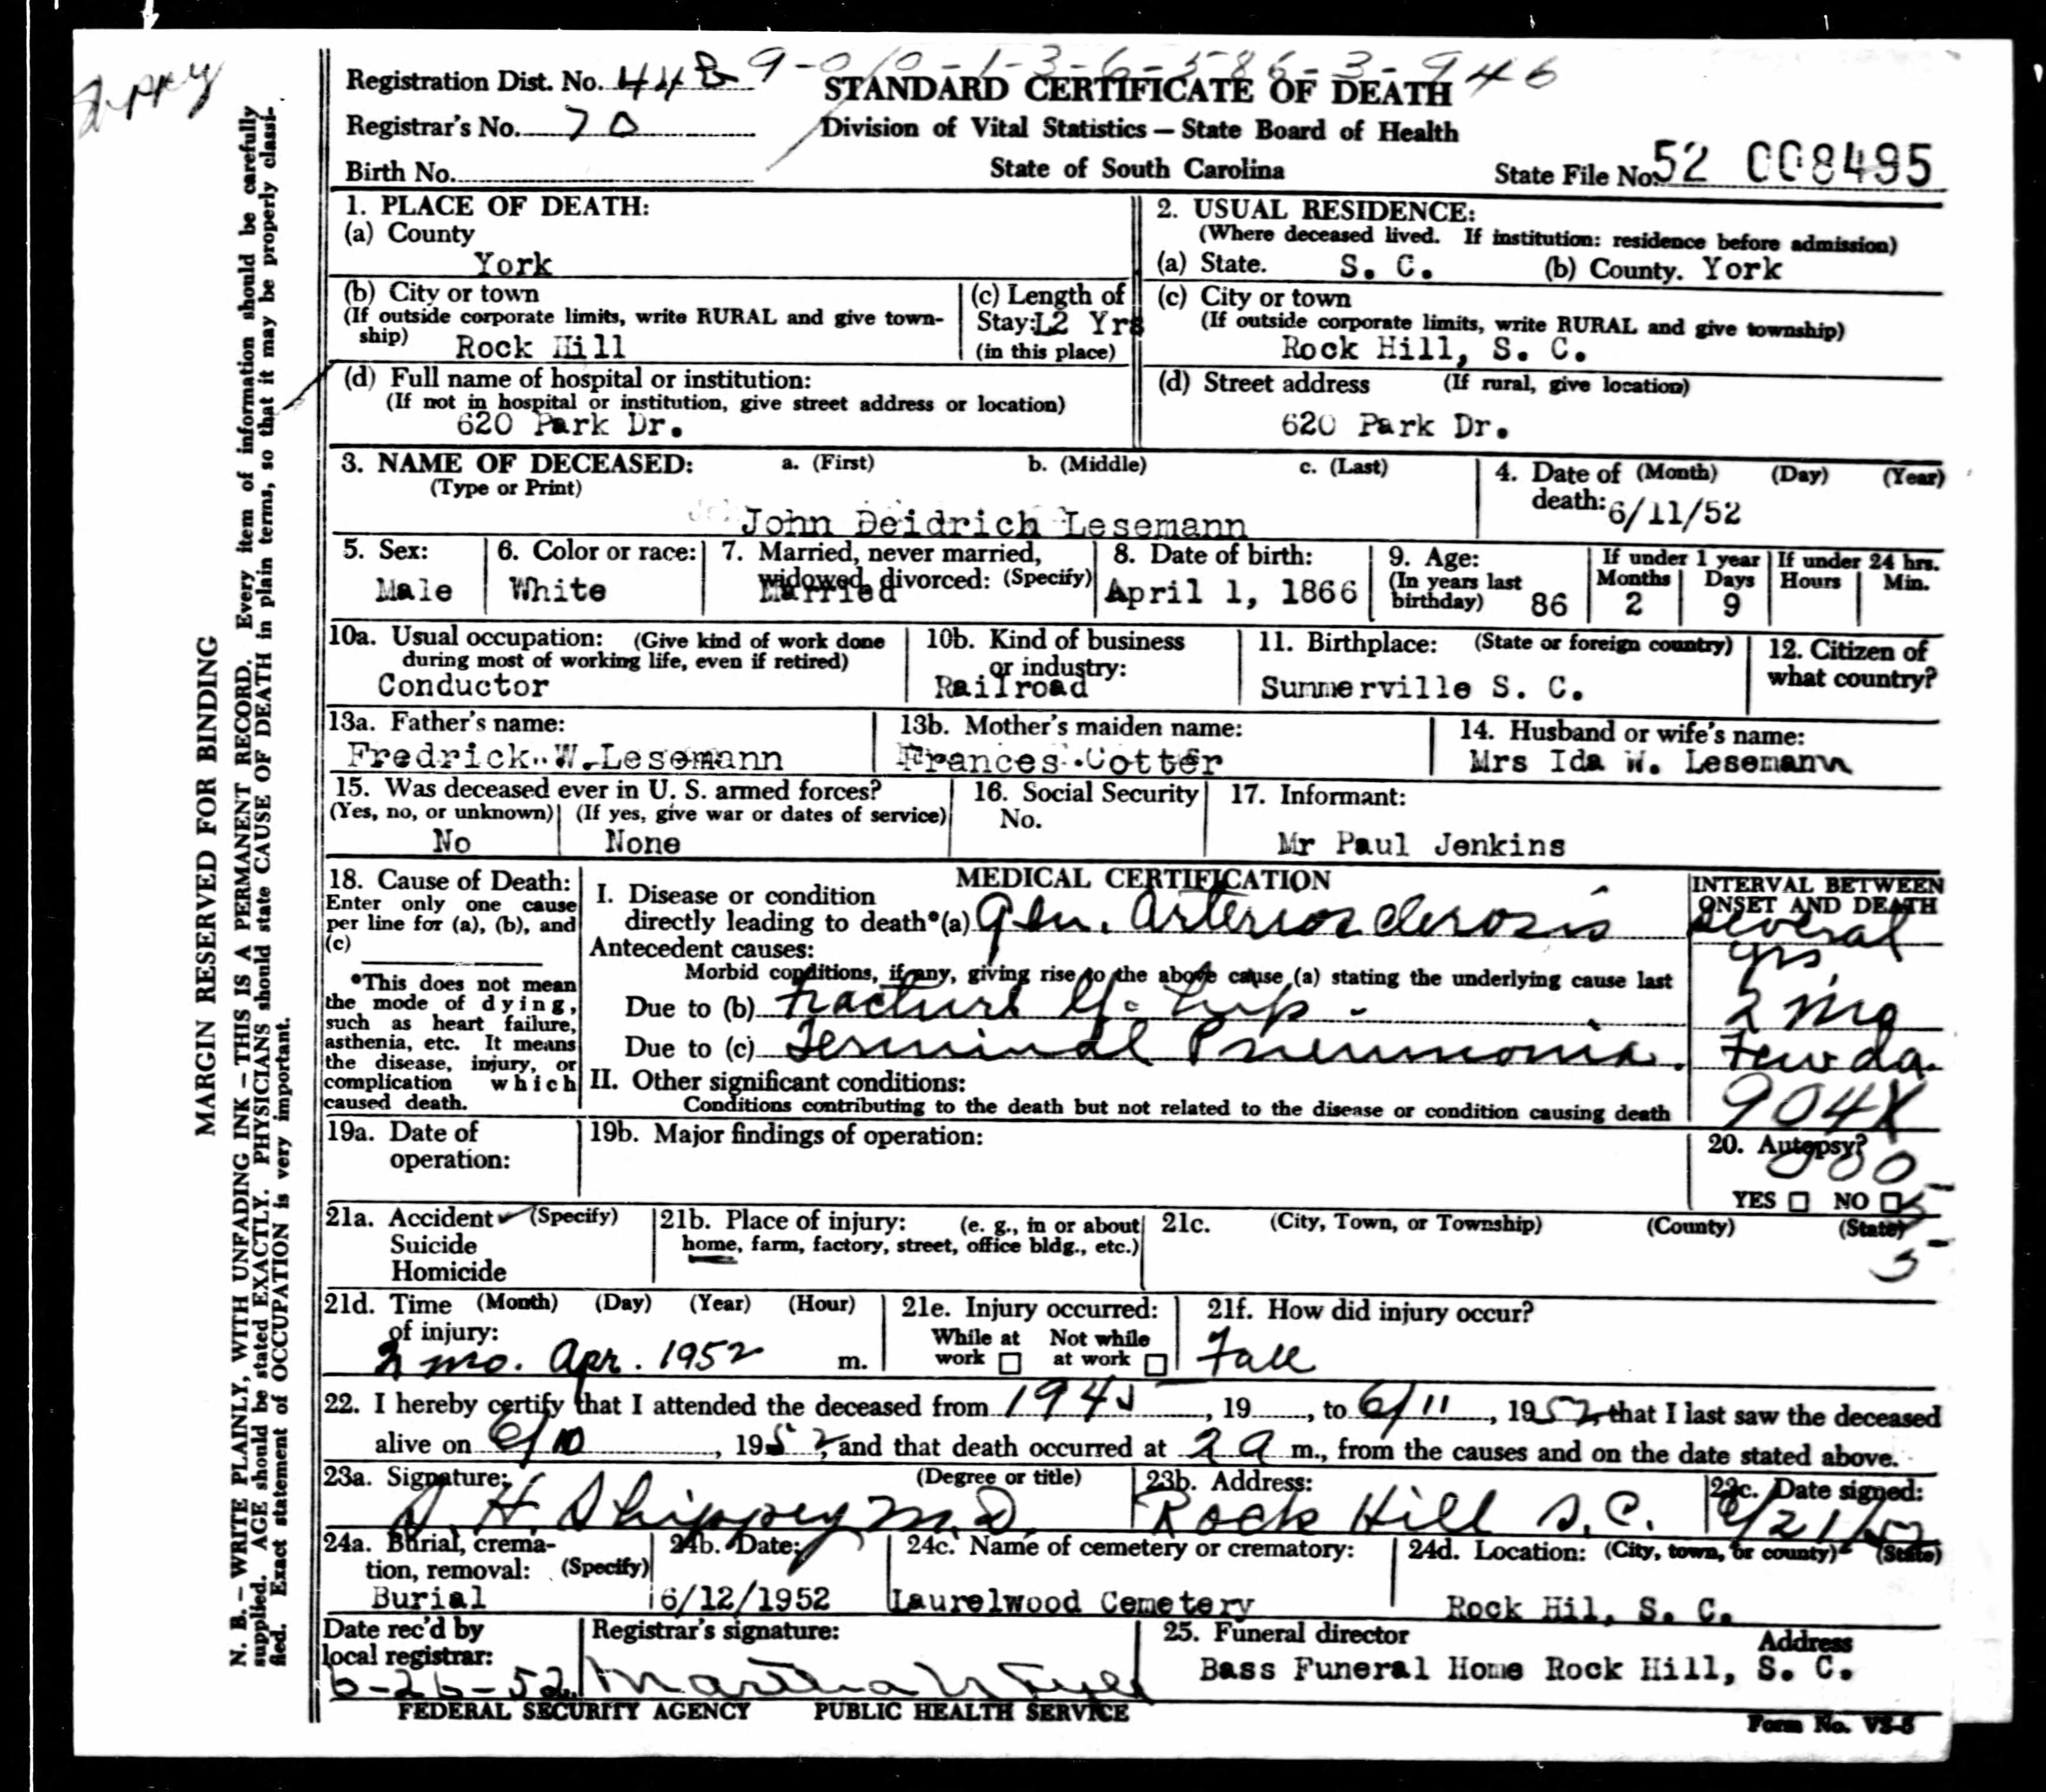 Shippey
Registration Dist. No. 448 9-010-1-3-6-586-3-946
STANDARD CERTIFICATE OF DEATH
Registrar's No. 70
Division of Vital Statistics — State Board of Health
Birth No.
State of South Carolina
State File No. 52 008495
1. PLACE OF DEATH:
(a) County
York
2. USUAL RESIDENCE:
(Where deceased lived. If institution: residence before admission)
(a) State. S. C. (b) County. York
(b) City or town
(If outside corporate limits, write RURAL and give town-
ship) Rock Hill
(c) Length of
Stay: 12 Yrs
(in this place)
(c) City or town
(If outside corporate limits, write RURAL and give township)
Rock Hill, S. C.
(d) Full name of hospital or institution:
(If not in hospital or institution, give street address or location)
620 Park Dr.
(d) Street address (If rural, give location)
620 Park Dr.
3. NAME OF DECEASED: a. (First) b. (Middle) c. (Last)
(Type or Print)
John Deidrich Lesemann
4. Date of (Month) (Day) (Year)
death: 6/11/52
5. Sex:
Male
6. Color or race:
White
7. Married, never married,
widowed, divorced: (Specify)
Married
8. Date of birth:
April 1, 1866
9. Age:
(In years last
birthday) 86
If under 1 year
Months Days
2 9
If under 24 hrs.
Hours Min.
10a. Usual occupation: (Give kind of work done
during most of working life, even if retired)
Conductor
10b. Kind of business
or industry:
Railroad
11. Birthplace: (State or foreign country)
Summerville S. C.
12. Citizen of
what country?
13a. Father's name:
Fredrick W. Lesemann
13b. Mother's maiden name:
Frances Cotter
14. Husband or wife's name:
Mrs Ida W. Lesemann
15. Was deceased ever in U. S. armed forces?
(Yes, no, or unknown) (If yes, give war or dates of service)
No None
16. Social Security
No.
17. Informant:
Mr Paul Jenkins
18. Cause of Death:
Enter only one cause
per line for (a), (b), and
(c)
*This does not mean
the mode of dying,
such as heart failure,
asthenia, etc. It means
the disease, injury, or
complication which
caused death.
MEDICAL CERTIFICATION
I. Disease or condition
directly leading to death*(a) Gen. Arteriosclerosis
Antecedent causes:
Morbid conditions, if any, giving rise to the above cause (a) stating the underlying cause last
Due to (b) Fracture of hip -
Due to (c) Terminal Pneumonia.
II. Other significant conditions:
Conditions contributing to the death but not related to the disease or condition causing death
INTERVAL BETWEEN
ONSET AND DEATH
several
yrs.
2 mo
Few da.
904X
19a. Date of
operation:
19b. Major findings of operation:
20. Autopsy?
YES NO
21a. Accident ✓ (Specify)
Suicide
Homicide
21b. Place of injury: (e. g., in or about
home, farm, factory, street, office bldg., etc.)
21c. (City, Town, or Township) (County) (State)
5
21d. Time (Month) (Day) (Year) (Hour)
of injury:
2 mo. Apr. 1952 m.
21e. Injury occurred:
While at Not while
work at work
21f. How did injury occur?
Fall
22. I hereby certify that I attended the deceased from 1945, 19, to 6/11, 1952, that I last saw the deceased
alive on 6/10, 1952, and that death occurred at 2 a m., from the causes and on the date stated above.
23a. Signature: (Degree or title)
H. Shippey M.D.
23b. Address:
Rock Hill S.C.
23c. Date signed:
6/21/52
24a. Burial, crema-
tion, removal: (Specify)
Burial
24b. Date:
6/12/1952
24c. Name of cemetery or crematory:
Laurelwood Cemetery
24d. Location: (City, town, or county) (State)
Rock Hil, S. C.
Date rec'd by
local registrar:
6-26-52
Registrar's signature:
Martha
25. Funeral director Address
Bass Funeral Home Rock Hill, S. C.
FEDERAL SECURITY AGENCY PUBLIC HEALTH SERVICE
Form No. VS-5
MARGIN RESERVED FOR BINDING
N. B.—WRITE PLAINLY, WITH UNFADING INK—THIS IS A PERMANENT RECORD. Every item of information should be carefully
supplied. AGE should be stated EXACTLY. PHYSICIANS should state CAUSE OF DEATH in plain terms, so that it may be properly classi-
fied. Exact statement of OCCUPATION is very important.